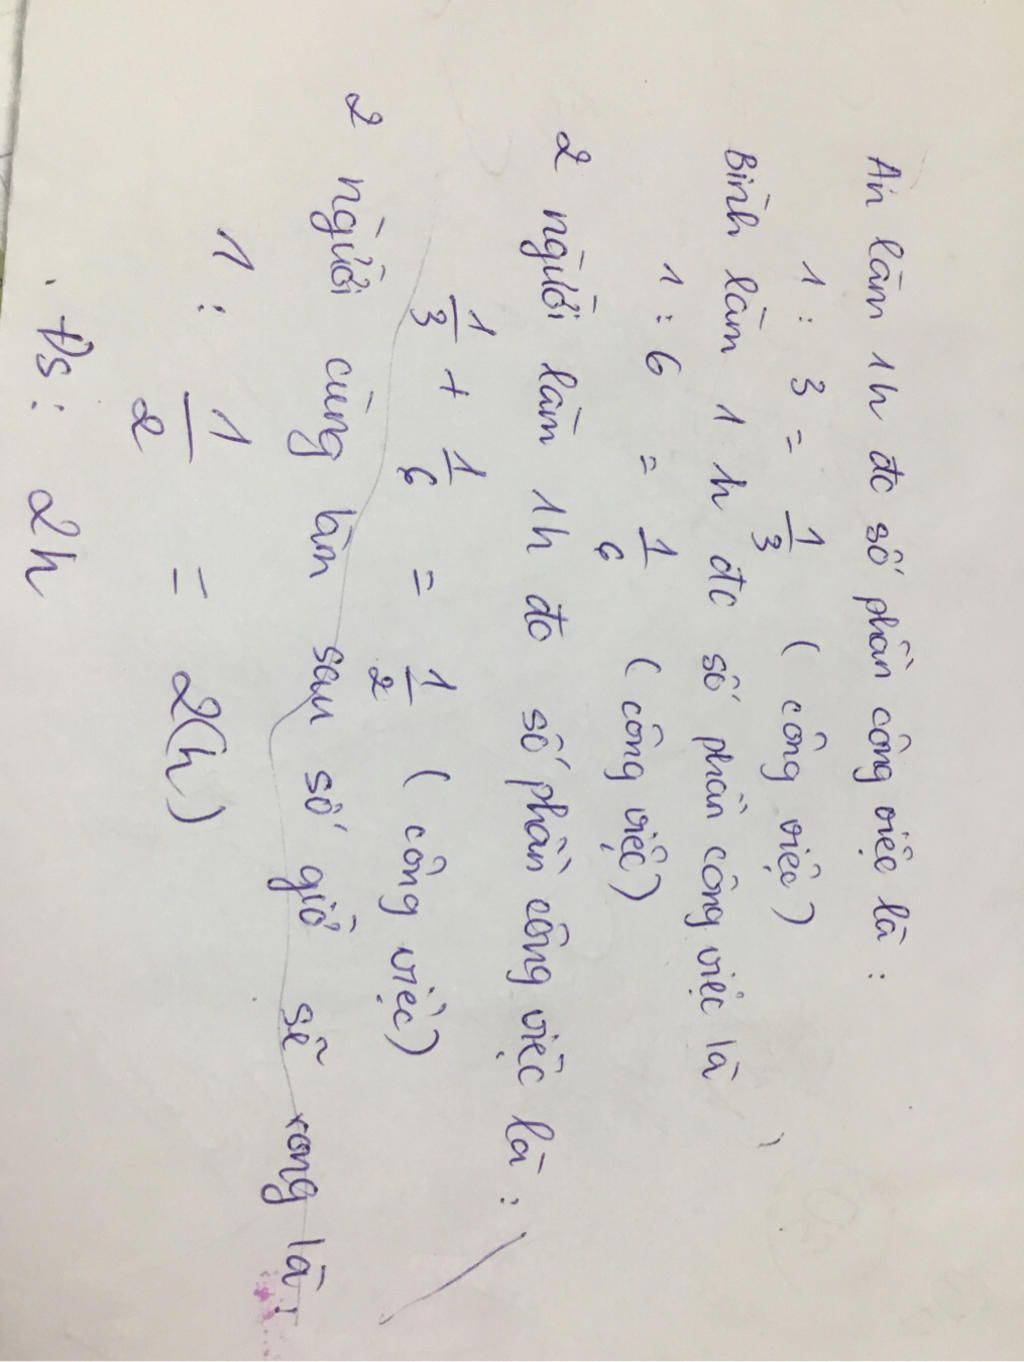 An làm 1h đc số phần công việc là :
1 : 3 = 1/3 ( công việc )
Bình làm 1 h đc số phần công việc là
1 : 6 = 1/6 ( công việc )
2 người làm 1h đc số phần công việc là :
1/3 + 1/6 = 1/2 ( công việc )
2 người cùng làm sau số giờ sẽ xong là :
1 : 1/2 = 2(h)
Đs : 2h